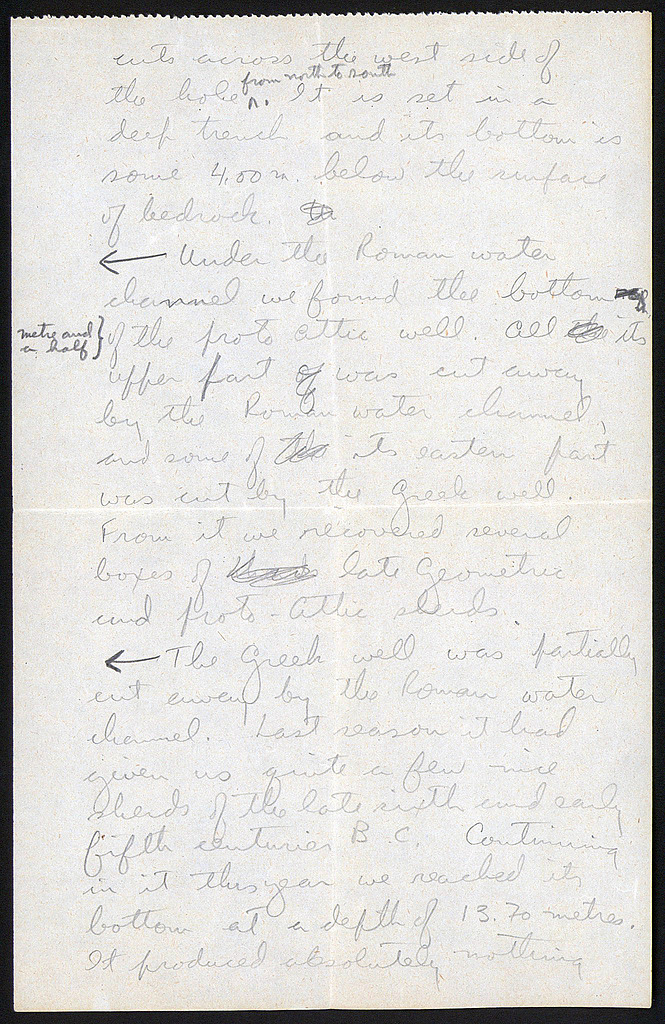 cuts across the west side of
the hole from north to south. It is set in a
deep trench and its bottom is
some 4.00 m. below the surface
of bedrock.
← Under the Roman water
channel we found the bottom
metre and a half} of the proto Attic well. All its
upper part of was cut away
by the Roman water channel,
and some of its eastern part
was cut by the Greek well.
From it we recovered several
boxes of late Geometric
and proto-Attic sherds.
← The Greek well was partially
cut away by the Roman water
channel. Last season it had
given us quite a few nice
sherds of the late sixth and early
fifth centuries B.C. Continuing
in it this year we reached its
bottom at a depth of 13.70 metres.
It produced absolutely nothing